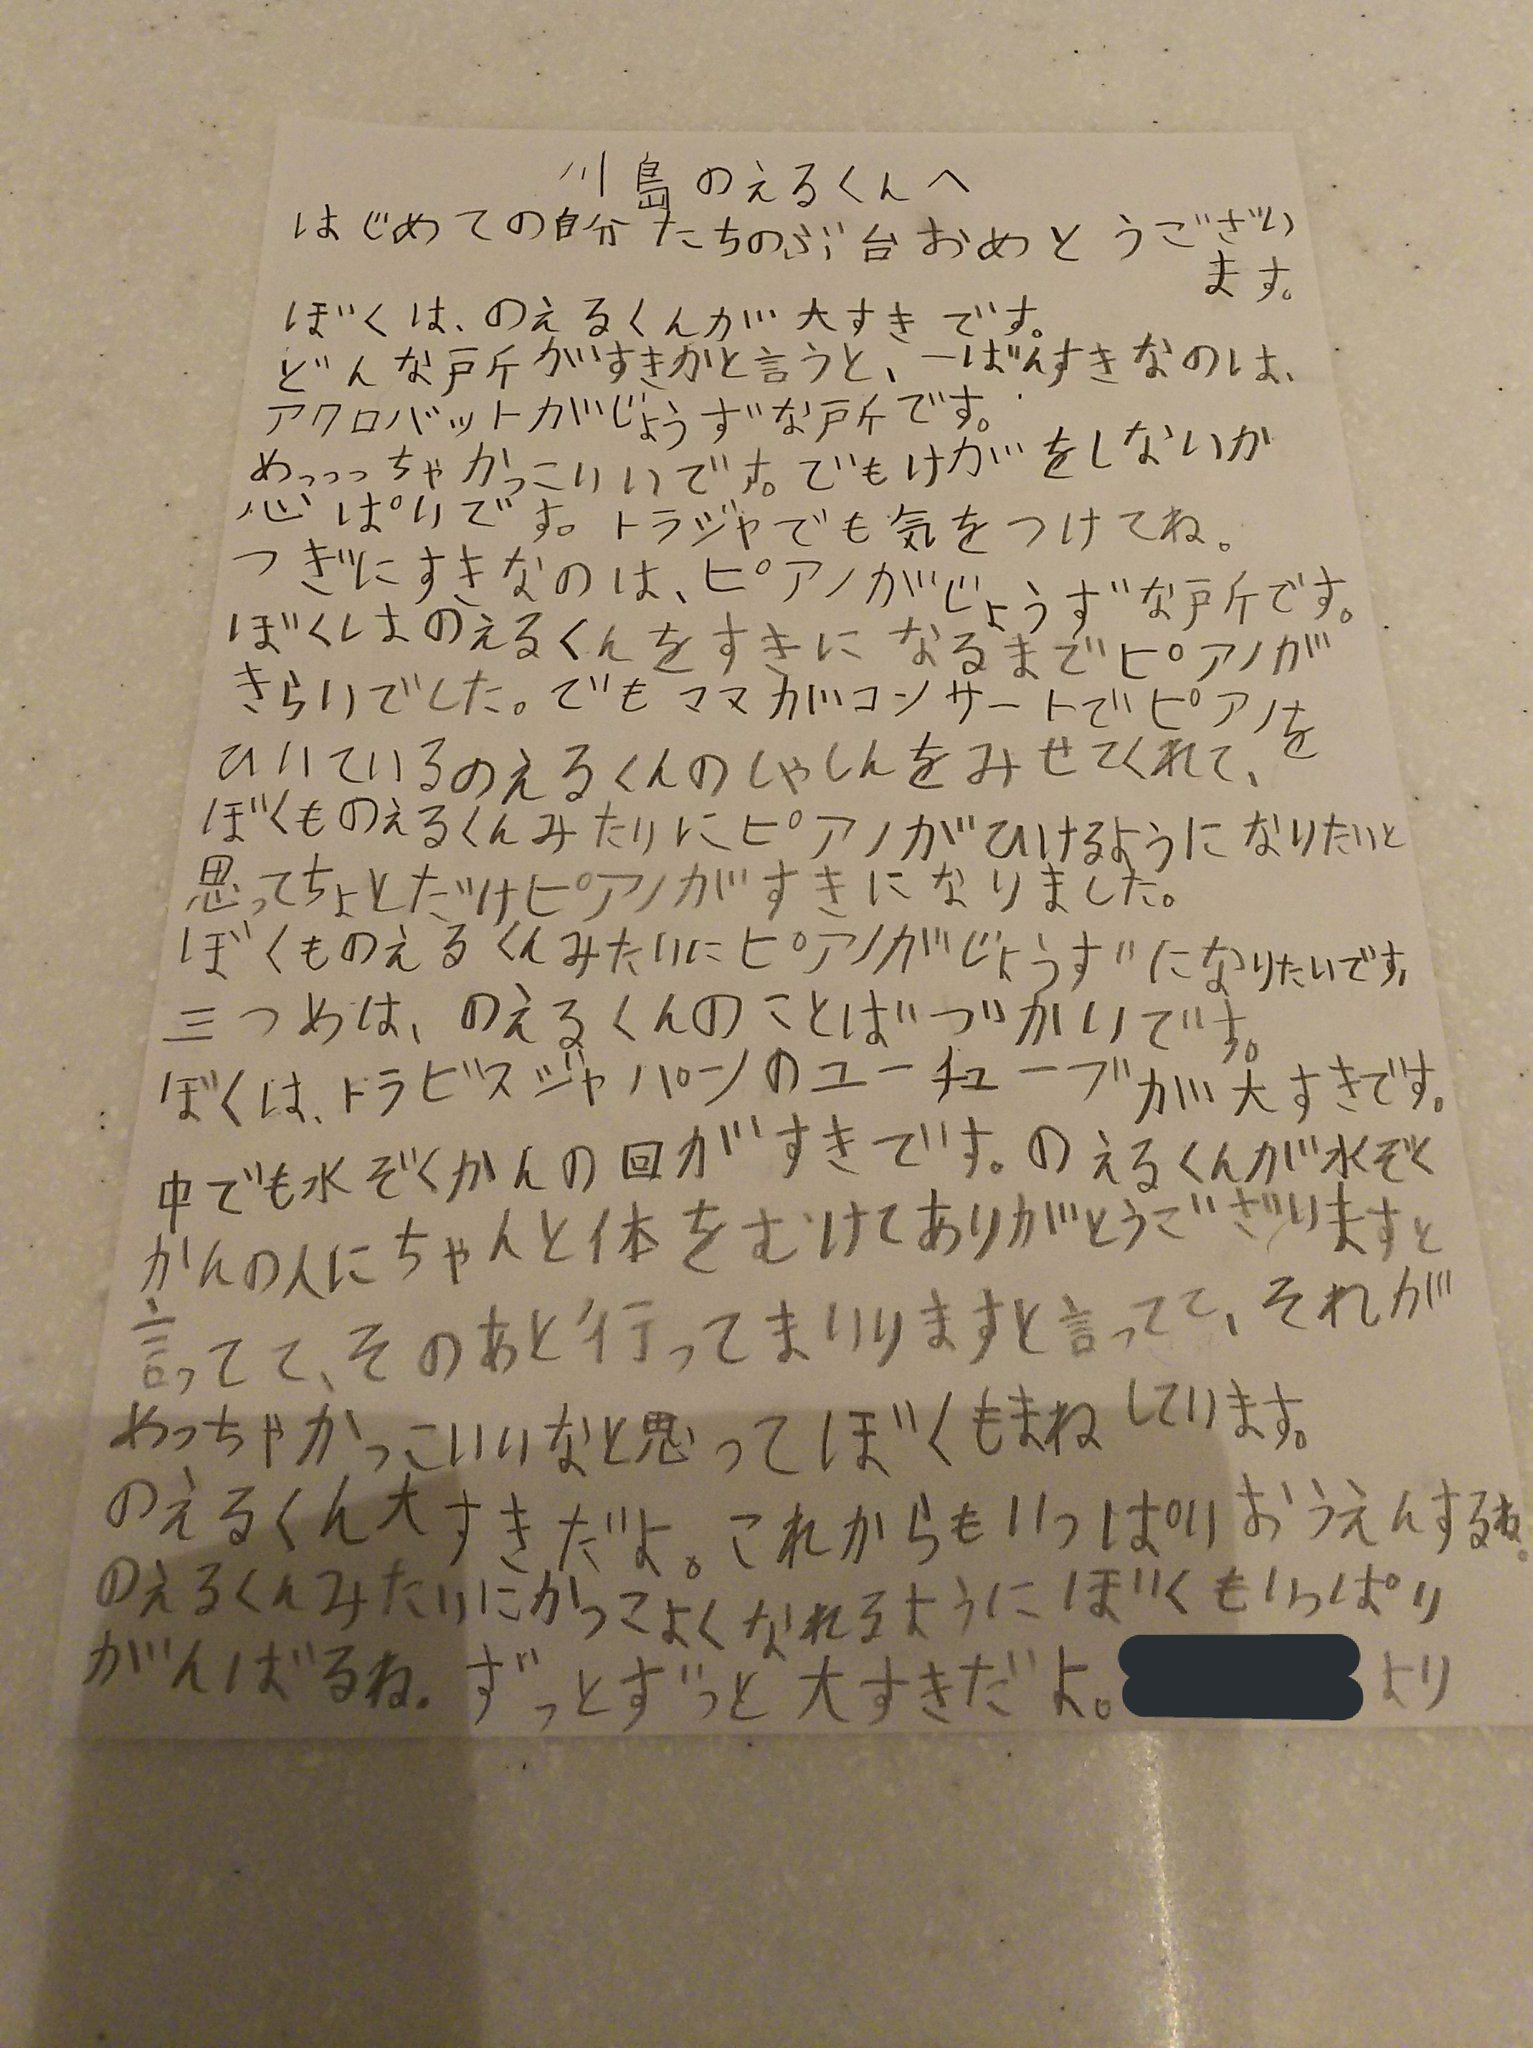 川島のえるくんへ
はじめての自分たちのぶ台おめとうござい
ます。
ぼくは、のえるくんが大すきです。
どんな所がすきかと言うと、一ばんすきなのは、
アクロバットがじょうずな所です。
めっっっちゃかっこいいです。でもけがをしないか
心ぱいです。トラジャでも気をつけてね。
つぎにすきなのは、ピアノがじょうずな所です。
ぼくはのえるくんをすきになるまでピアノが
きらいでした。でもママがコンサートでピアノを
ひいているのえるくんのしゃしんをみせてくれて、
ぼくものえるくんみたいにピアノがひけるようになりたいと
思ってちょとだけピアノがすきになりました。
ぼくものえるくんみたいにピアノがじょうずになりたいです。
三つめは、のえるくんのことばづかいです。
ぼくは、トラビスジャパンのユーチューブが大すきです。
中でも水ぞくかんの回がすきです。のえるくんが水ぞく
かんの人にちゃんと体をむけてありがとうございますと
言ってて、そのあと行ってまいりますと言ってて、それが
めっちゃかっこいいなと思ってぼくもまねしています。
のえるくん大すきだよ。これからもいっぱいおうえんするね。
のえるくんみたいにかっこよくなれるようにぼくもいっぱい
がんばるね。ずっとずっと大すきだよ。より